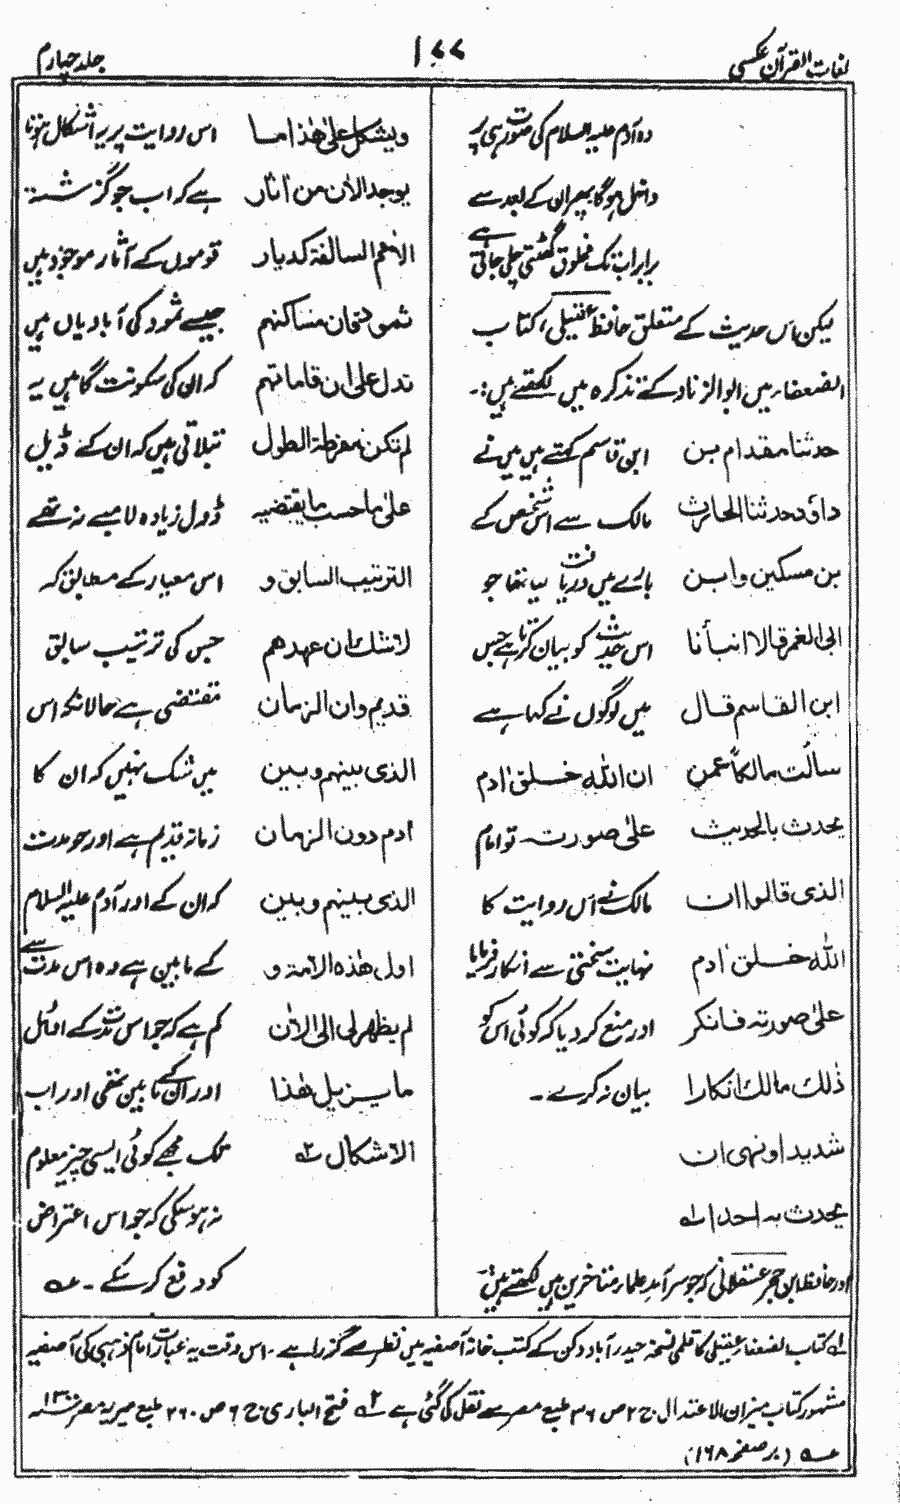 لغات القرآن عکسی
۱۷۷
جلد چہارم
وہ آدم علیہ السلام کی صورت ہی پر
داخل ہوگا پھر ان کے بعد سے
برابر اب تک مخلوق گھٹتی چلی جاتی ہے
لیکن اس حدیث کے متعلق حافظ عقیلی، کتاب
الضعفاء میں ابوالزناد کے تذکرہ میں لکھتے ہیں:۔
حدثنا مقدام بن
داؤد حدثنا الحارث
بن مسکین وابن
ابی الغمر قالا انبأنا
ابن القاسم قال
سألت مالکاً عمن
یحدث بالحدیث
الذی قالوا ان
اللہ خلق اٰدم
علیٰ صورتہ فانکر
ذٰلک مالک انکارا
شدیدا ونہی ان
یحدث بہ احد الہ
ابن قاسم کہتے ہیں میں نے
مالک سے اس شخص کے
بارے میں دریافت کیا تھا جو
اس حدیث کو بیان کرتا ہے جس
میں لوگوں نے کہا ہے
ان اللہ خلق اٰدم
علیٰ صورتہ تو امام
مالک نے اس روایت کا
نہایت سختی سے انکار فرمایا
اور منع کردیا کہ کوئی اس کو
بیان نہ کرے۔
اور حافظ ابن حجر عسقلانی کہ جو سرآمد علمار متاخرین ہیں لکھتے ہیں:۔
ویشکل علیٰ ھٰذا ما
یوجد الاٰن من اٰثار
الاُمم السالفۃ کدیار
ثمود فان مساکنھم
تدل علیٰ ان قاماتھم
لم تکن مفرطۃ الطول
علیٰ ما حسب ما یقتضیہ
الترتیب السابق و
لا شک ان عھدھم
قدیم وان الزمان
الذی بینھم وبین
اٰدم دون الزمان
الذی بینھم وبین
اول ھٰذہ الامۃ و
لم یظھر لی الی الاٰن
ما یزیل ھٰذا
الاشکال ۲ہ
اس روایت پر یہ اشکال ہوتا
ہے کہ اب جو گزشتہ
قوموں کے آثار موجود ہیں
جیسے ثمود کی آبادیاں ہیں
کہ ان کی سکونت گاہیں یہ
بتلاتی ہیں کہ ان کے ڈیل
ڈول زیادہ لامبے نہ تھے
اس معیار کے مطابق کہ
جس کی ترتیب سابق
مقتضی ہے حالانکہ اس
میں شک نہیں کہ ان کا
زمانہ قدیم ہے اور جو مدت
کہ ان کے اور آدم علیہ السلام
کے مابین ہے وہ اس مدت سے
کم ہے کہ جو اس امت کے اوائل
اور ان کے مابین تھی اور اب
تک مجھے کوئی ایسی چیز معلوم
نہ ہوسکی کہ جو اس اعتراض
کو دفع کرسکے ۔ ۳ہ
۱ہ کتاب الضعفاء عقیلی کا قلمی نسخہ حیدرآباد دکن کے کتب خانہ آصفیہ میں نظر سے گزرا ہے ۔ اس وقت یہ عبارت امام ذہبی کی آصفیہ
مشہور کتاب میزان الاعتدال ج ۲ ص ۳۶ طبع مصر سے نقل کی گئی ہے ۲ہ فتح الباری ج ۶ ص ۲۶۰ طبع میریہ مصر
۳ہ (بر صفحہ ۱۶۸)